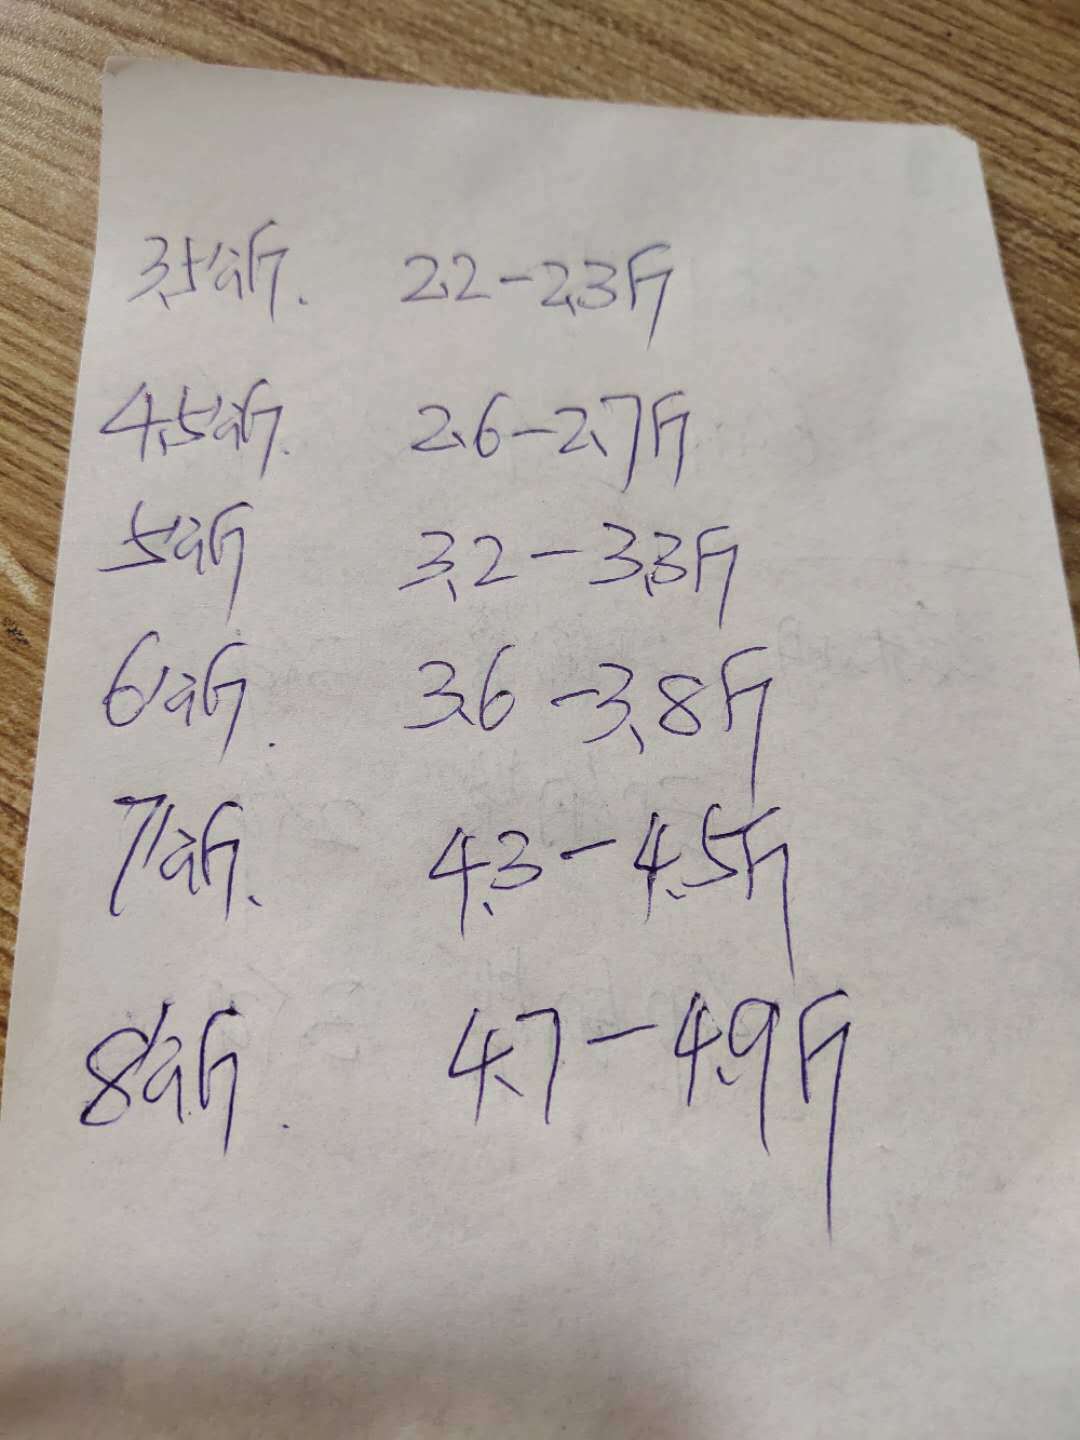 3.5公斤. 2.2-2.3斤
4.5公斤. 2.6-2.7斤
5公斤 3.2-3.3斤
6公斤. 3.6-3.8斤
7公斤. 4.3-4.5斤
8公斤. 4.7-4.9斤